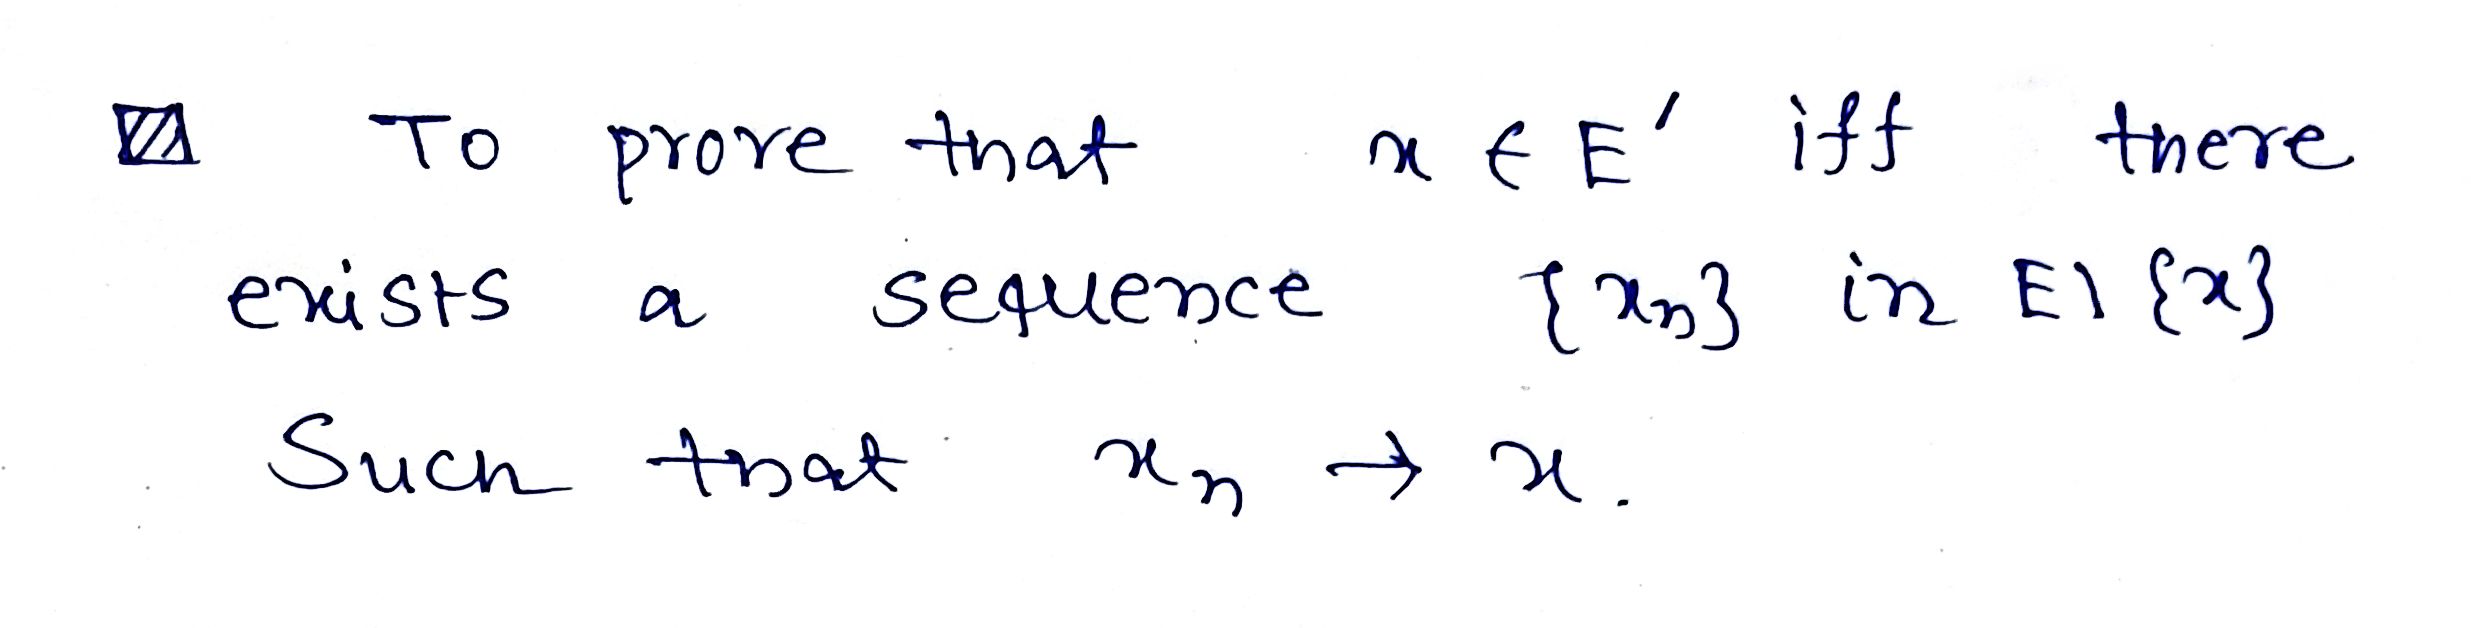 To prove that x ∈ E′ iff there
exists a sequence {xₙ} in E \ {x}
Such that xₙ → x.